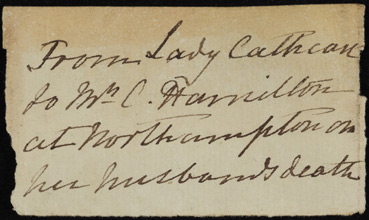 From Lady Cathcart
to Mrs C. Hamilton
at Northampton on
her husband's death